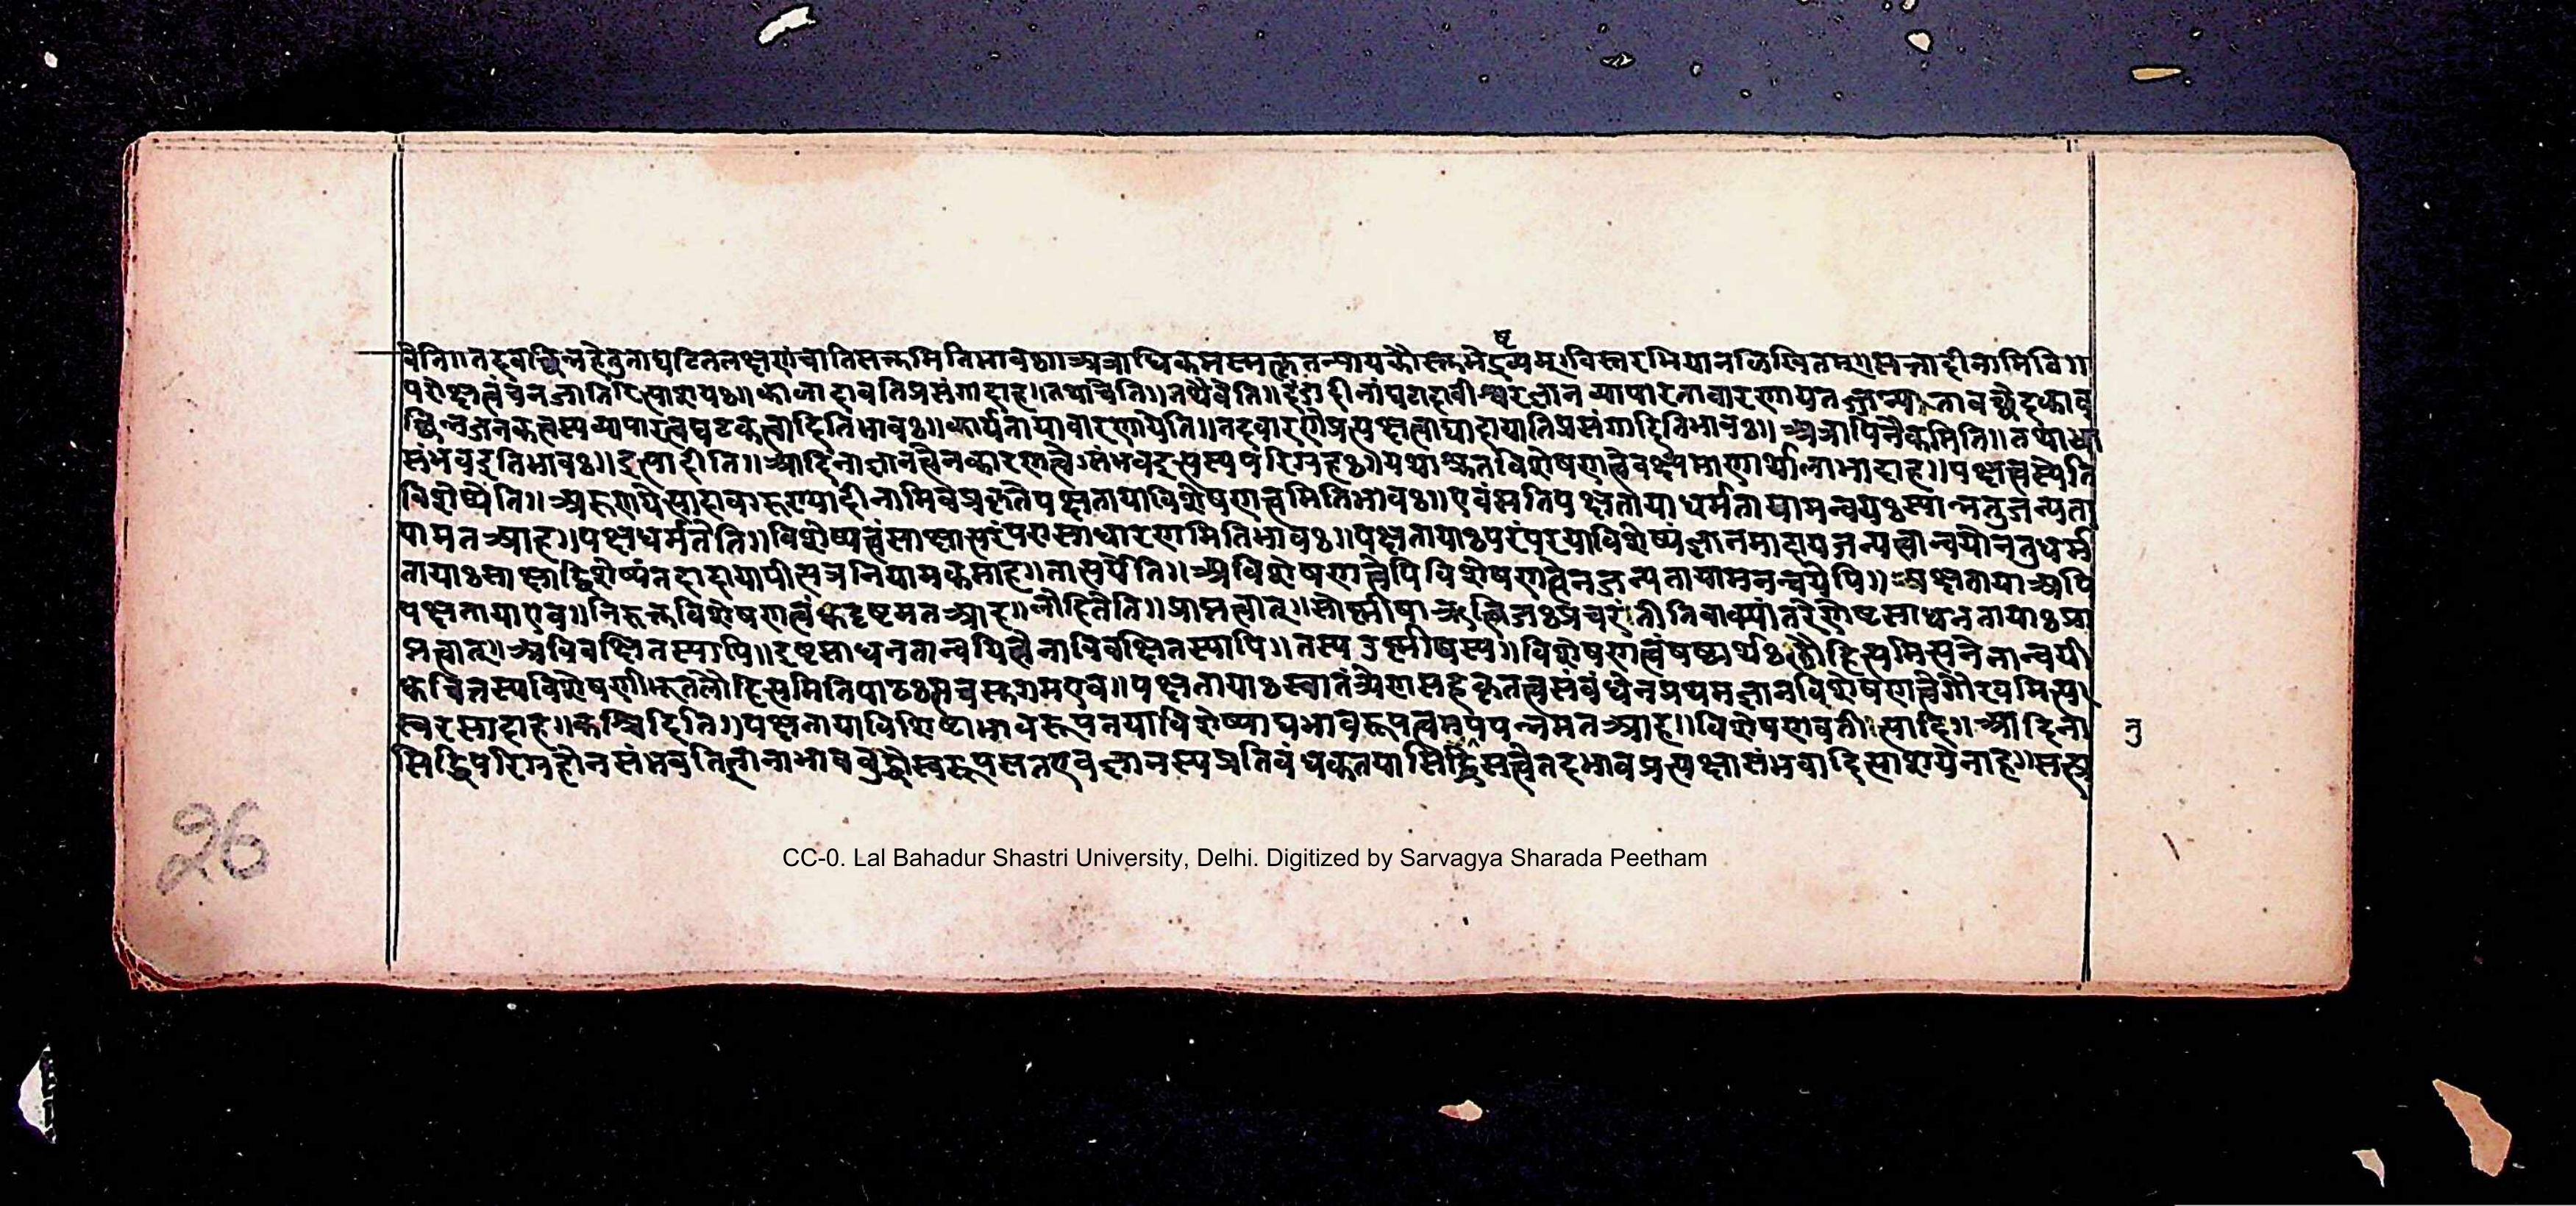 वेति॥तदवच्छिन्नहेतुताघटितलक्षणंचातिसक्तमितिभावः॥अत्राधिकमस्मत्कृतन्यायकौस्तुभेद्रष्टव्यम्।विस्तरभियानलिखितम्॥सत्तादीनामिवि॥
परोक्षत्वंचनजातिरित्याशयः॥कालादावतिप्रसंगादाह॥तथाचेति॥तथैवेति॥दंडादीनांघटादावीश्वरज्ञानव्यापारतावारणाय
च्छिन्नजनकत्वस्यव्यापारत्वघटकत्वादितिभावः॥कार्यतायावारणायेति॥तद्वारणेप्रत्यक्षत्वाद्यादायातिप्रसंगादितिभावः॥अत्रापिनैकमिति॥तथाचा
संभवइतिभावः॥इत्यादीति॥आदिनाज्ञानत्वेनकारणत्वेसंभवइत्यस्यपरिग्रहः॥यथाश्रुतविशेषणत्वेवक्ष्यमाणार्थालाभादाह॥पक्षत्वस्येति
विशेष्येति॥अरुणयेत्यादावारुण्यादीनामिवप्रकृतेपक्षतायाविशेषणत्वमितिभावः॥एवंसतिपक्षतायाधर्मतायामन्वयःस्यान्नतुजन्यता
यामतआह॥पक्षधर्मतेति॥विशेष्यत्वंसाक्षात्परंपरासाधारणमितिभावः॥पक्षतायाःपरंपरयाविशेष्यंज्ञानमादायजन्यत्वान्वयोनतुधर्म
तायाःसाक्षाद्विशेष्यंतदादायापीत्यत्रनियामकमाह॥तात्पर्येति॥अविशेषणत्वेपिविशेषणत्वेनजन्यतायामनन्वयेपि॥पक्षतायाअपि
पक्षतायाएव॥निरुक्तविशेषणत्वंक्वदृष्टमतआह॥लोहितेति॥प्राप्तत्वात्॥सोष्णीषाऋत्विजःप्रचरंतीतिवाक्यांतरेणेष्टसाधनतायाःप्रा
प्तत्वात्॥अविवक्षितस्यापि॥इष्टसाधनतान्वयित्वेनाविवक्षितस्यापि॥तस्यउष्णीषस्य॥विशेषणत्वंषष्ठ्यर्थःलौहित्यमित्यनेनान्वयी
क्वचित्तस्यविशेषणीभूतलौहित्यमितिपाठःसचसुगमएव॥पक्षतायाःस्वातंत्र्येणसहकृतत्वसंबंधेनप्रथमज्ञानविशेषणत्वेगौरवमित्य
स्वरसादाह॥कश्चिदिति॥पक्षतायाविशिष्टाभावरूपतयाविशेष्याद्यभावरूपत्वमनुपपन्नमतआह॥विशेषणवतीत्यादि॥आदिना
नु
सिद्धिपरिग्रहोनसंभवति स्वरूपसतएवज्ञानस्यप्रतिबंधकतयासिद्धिसत्वेतदभावप्रत्यक्षासंभवादित्याशयेनाह॥
26
CC-0. Lal Bahadur Shastri University, Delhi. Digitized by Sarvagya Sharada Peetham